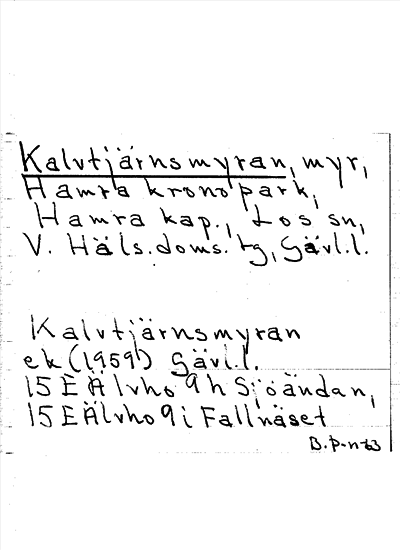 Kalvtjärnsmyran, myr,
Hamra kronopark,
Hamra kap., Los sn,
V. Häls. doms. tg, Gävl.l.
Kalvtjärnsmyran
ek (1959) Gävl.l.
15 E Älvho 9 h Sjöändan,
15 E Älvho 9 i Fallnäset